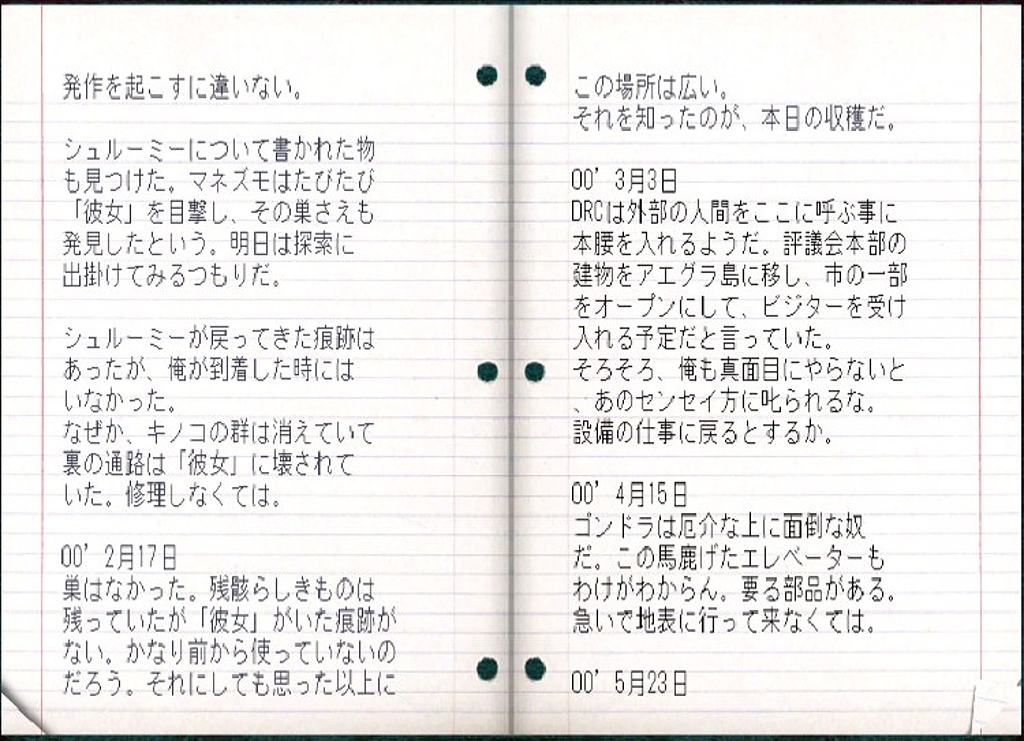 発作を起こすに違いない。
シュルーミーについて書かれた物
も見つけた。マネズモはたびたび
「彼女」を目撃し、その巣さえも
発見したという。明日は探索に
出掛けてみるつもりだ。
シュルーミーが戻ってきた痕跡は
あったが、俺が到着した時には
いなかった。
なぜか、キノコの群は消えていて
裏の通路は「彼女」に壊されて
いた。修理しなくては。
00’ 2月17日
巣はなかった。残骸らしきものは
残っていたが「彼女」がいた痕跡が
ない。かなり前から使っていないの
だろう。それにしても思った以上に
この場所は広い。
それを知ったのが、本日の収穫だ。
00’ 3月3日
DRCは外部の人間をここに呼ぶ事に
本腰を入れるようだ。評議会本部の
建物をアエグラ島に移し、市の一部
をオープンにして、ビジターを受け
入れる予定だと言っていた。
そろそろ、俺も真面目にやらないと
、あのセンセイ方に叱られるな。
設備の仕事に戻るとするか。
00’ 4月15日
ゴンドラは厄介な上に面倒な奴
だ。この馬鹿げたエレベーターも
わけがわからん。要る部品がある。
急いで地表に行って来なくては。
00’ 5月23日